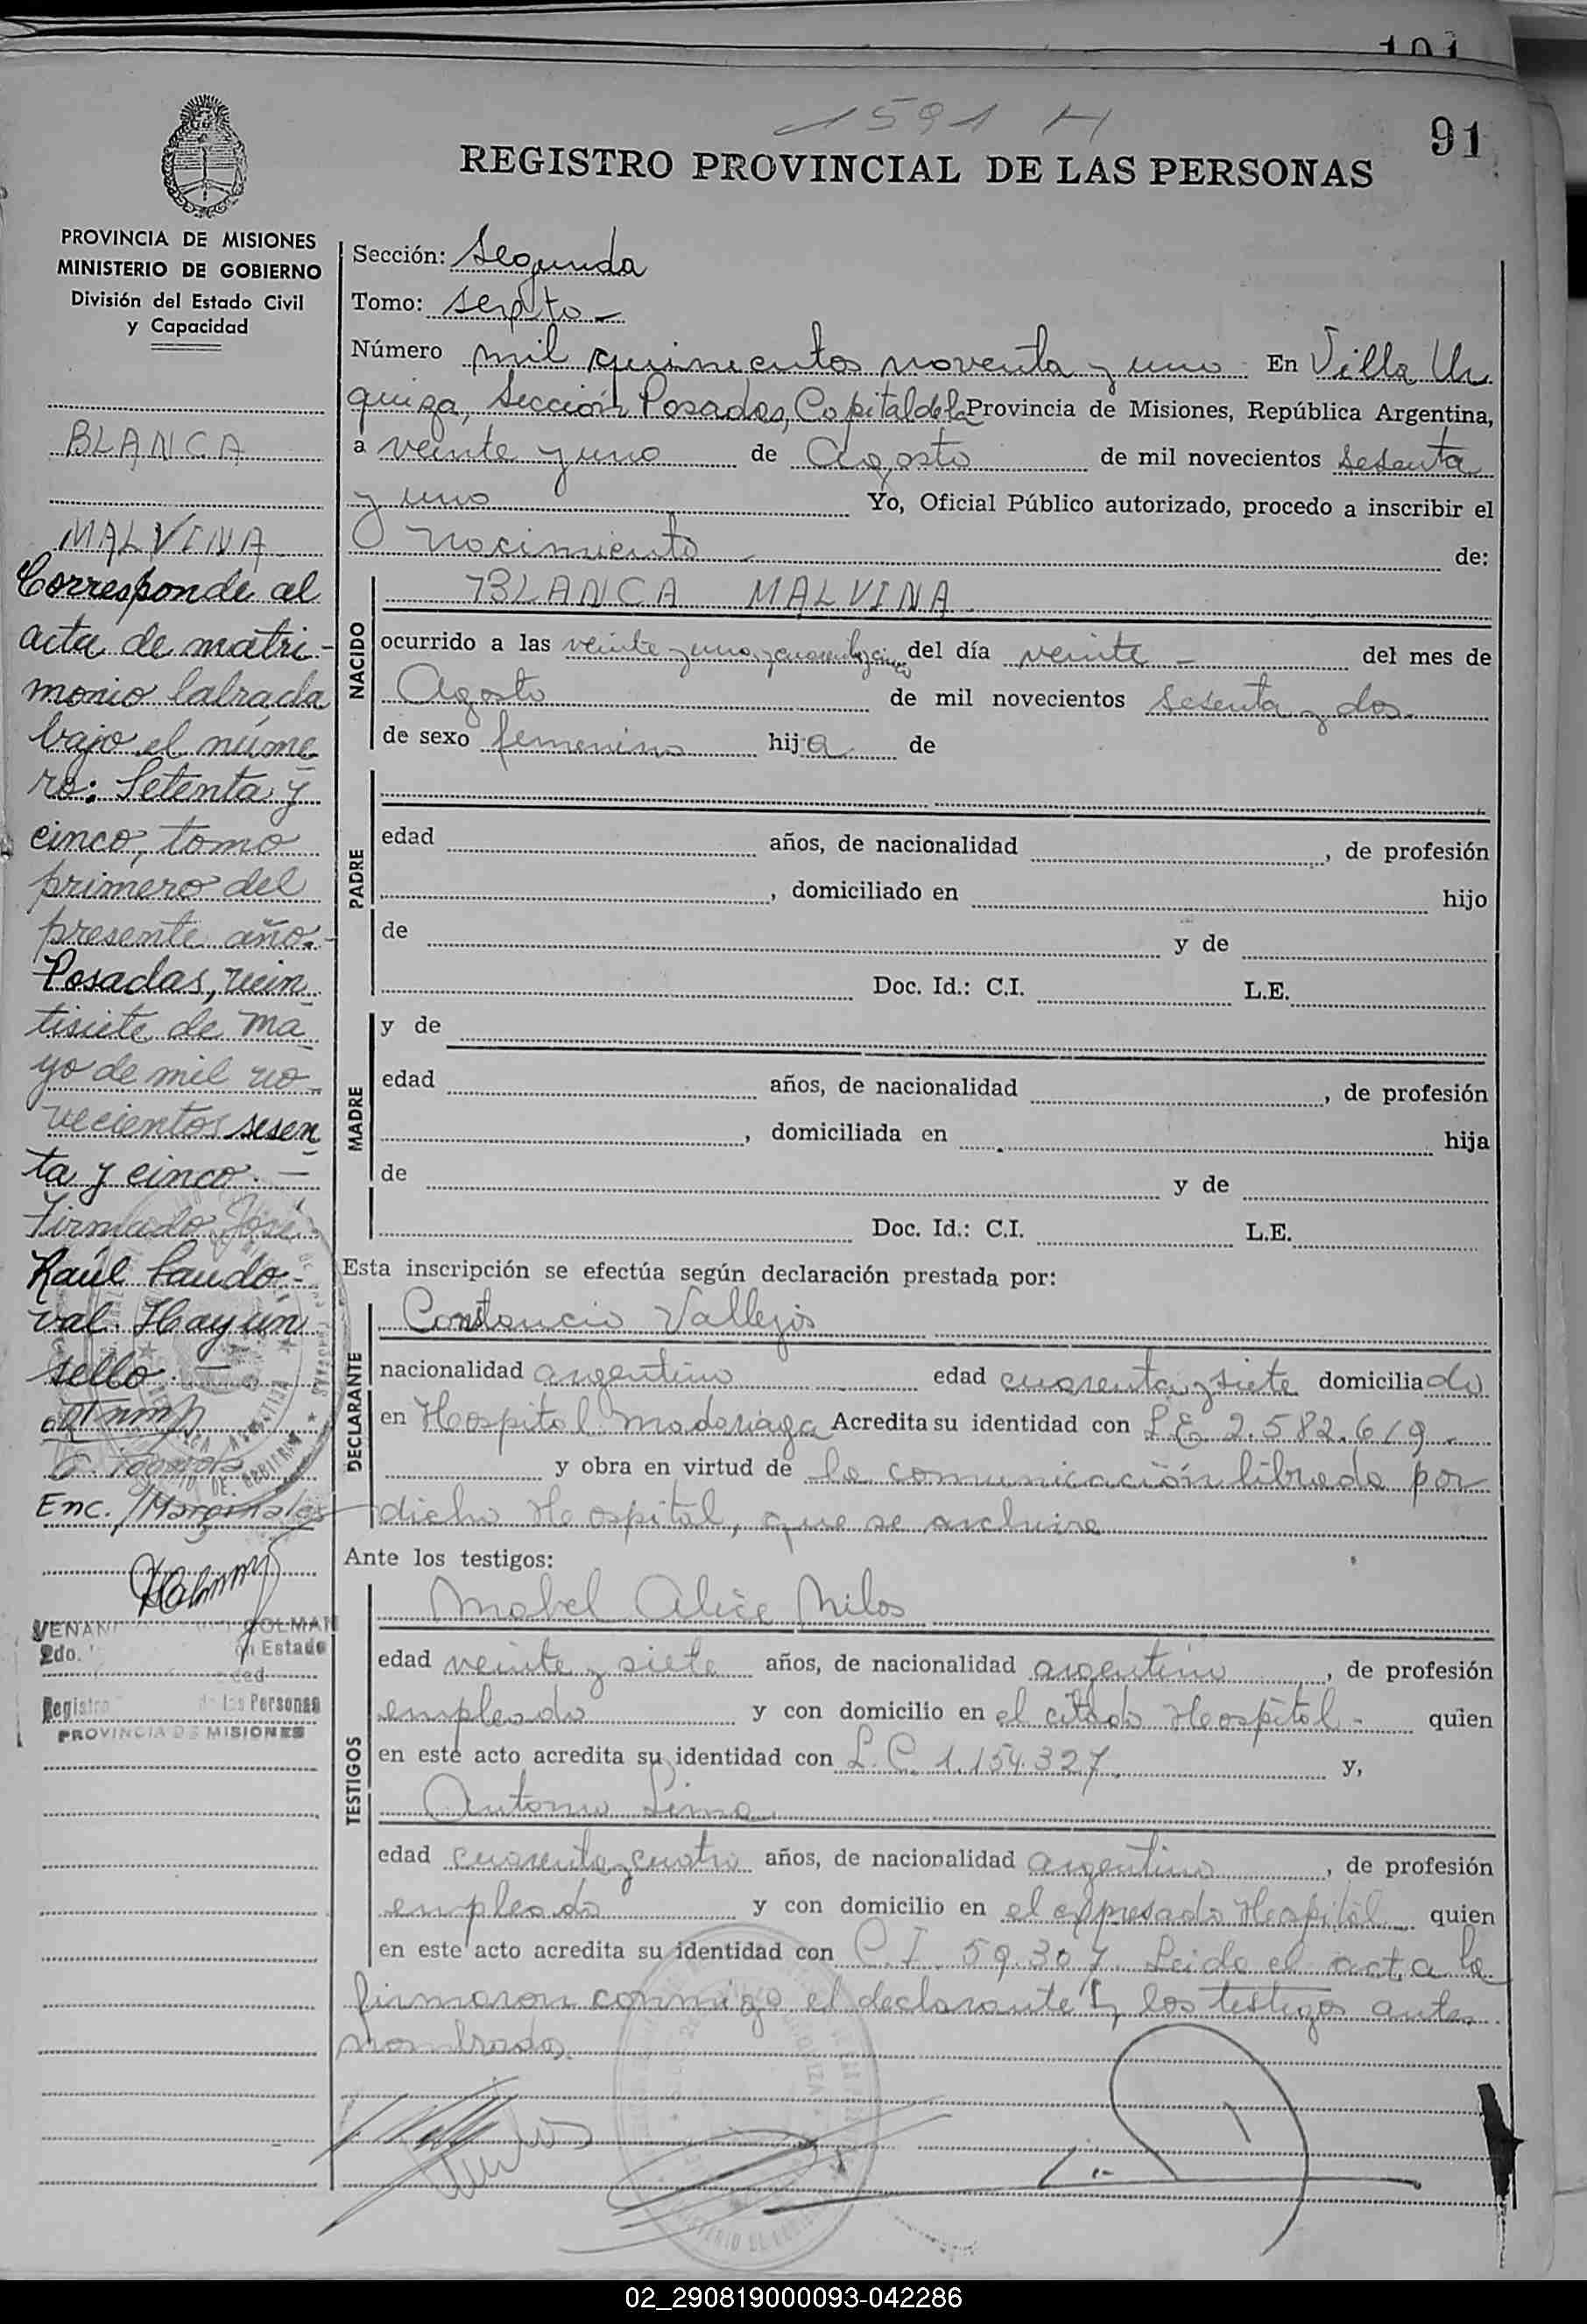 101
1591 H
91
REGISTRO PROVINCIAL DE LAS PERSONAS
PROVINCIA DE MISIONES
MINISTERIO DE GOBIERNO
División del Estado Civil
y Capacidad
BLANCA
MALVINA
Corresponde al
acta de matri-
monio labrada
bajo el núme
ro: Setenta y
cinco, tomo
primero del
presente año.-
Posadas, vein
tisiete de ma
yo de mil no
vecientos sesen
ta y cinco. —
Firmado José
Raúl Sando-
val. Hay un
sello. —
Enc. /Marginales
VENAN COLMAN
2do. Estado
Registro de las Personas
PROVINCIA DE MISIONES
Sección: Segunda
Tomo: sexto -
Número mil quinientos noventa y uno - En Villa Ur
quiza, Sección Posadas, Capital de la Provincia de Misiones, República Argentina,
a veinte y uno de Agosto de mil novecientos sesenta
y uno Yo, Oficial Público autorizado, procedo a inscribir el
nacimiento - de:
NACIDO
BLANCA MALVINA
ocurrido a las veinte y una y cuarenta y cinco del día veinte - del mes de
Agosto de mil novecientos sesenta y dos
de sexo femenino hija de
PADRE
edad años, de nacionalidad , de profesión
, domiciliado en hijo
de y de
Doc. Id.: C.I. L.E.
MADRE
y de
edad años, de nacionalidad , de profesión
, domiciliada en hija
de y de
Doc. Id.: C.I. L.E.
Esta inscripción se efectúa según declaración prestada por:
DECLARANTE
Constancio Vallejos
nacionalidad argentino edad cuarenta y siete domiciliado
en Hospital Madariaga Acredita su identidad con L E 2.582.619 -
y obra en virtud de la comunicación librada por
dicho Hospital, que se archiva
Ante los testigos:
TESTIGOS
Mabel Alice Milos
edad veinte y siete años, de nacionalidad argentino , de profesión
empleado y con domicilio en el citado Hospital - quien
en este acto acredita su identidad con L.C. 1.154.327. y,
Antonio Lima
edad cuarenta y cuatro años, de nacionalidad argentino , de profesión
empleado y con domicilio en el expresado Hospital quien
en este acto acredita su identidad con C.I. 59.307. Leida el acta la
firmaron conmigo el declarante y los testigos antes
nombrados.
02_290819000093-042286